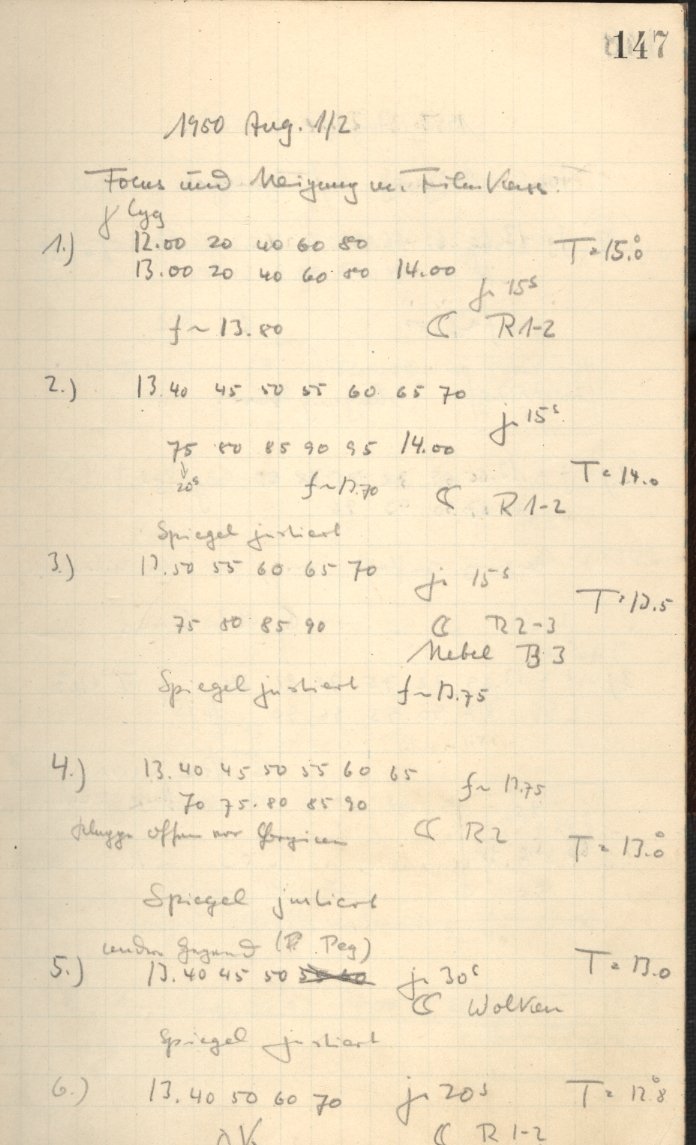 147
1950 Aug. 1/2
Focus und Neigung m. Film Kass.
γ Cyg
1.) 12.00 20 40 60 80 T = 15.°0
13.00 20 40 60 80 14.00
je 15s
f ~ 13.80 ☾ R 1-2
2.) 13.40 45 50 55 60 65 70
je 15s
75 80 85 90 95 14.00
20s f ~ 13.70 ☾ R 1-2 T = 14.0
Spiegel justiert
3.) 13.50 55 60 65 70 je 15s
T = 13.5
75 80 85 90 ☾ R 2-3
Nebel B 3
Spiegel justiert f ~ 13.75
4.) 13.40 45 50 55 60 65 f ~ 13.75
70 75. 80 85 90
Klappe offen vor ☾ R 2 T = 13.°0
Spiegel justiert
andere Gegend (β Peg)
5.) 13.40 45 50 55 60 je 30s T = 13.0
☾ Wolken
Spiegel justiert
6.) 13.40 50 60 70 je 20s T = 12.°8
☾ R 1-2